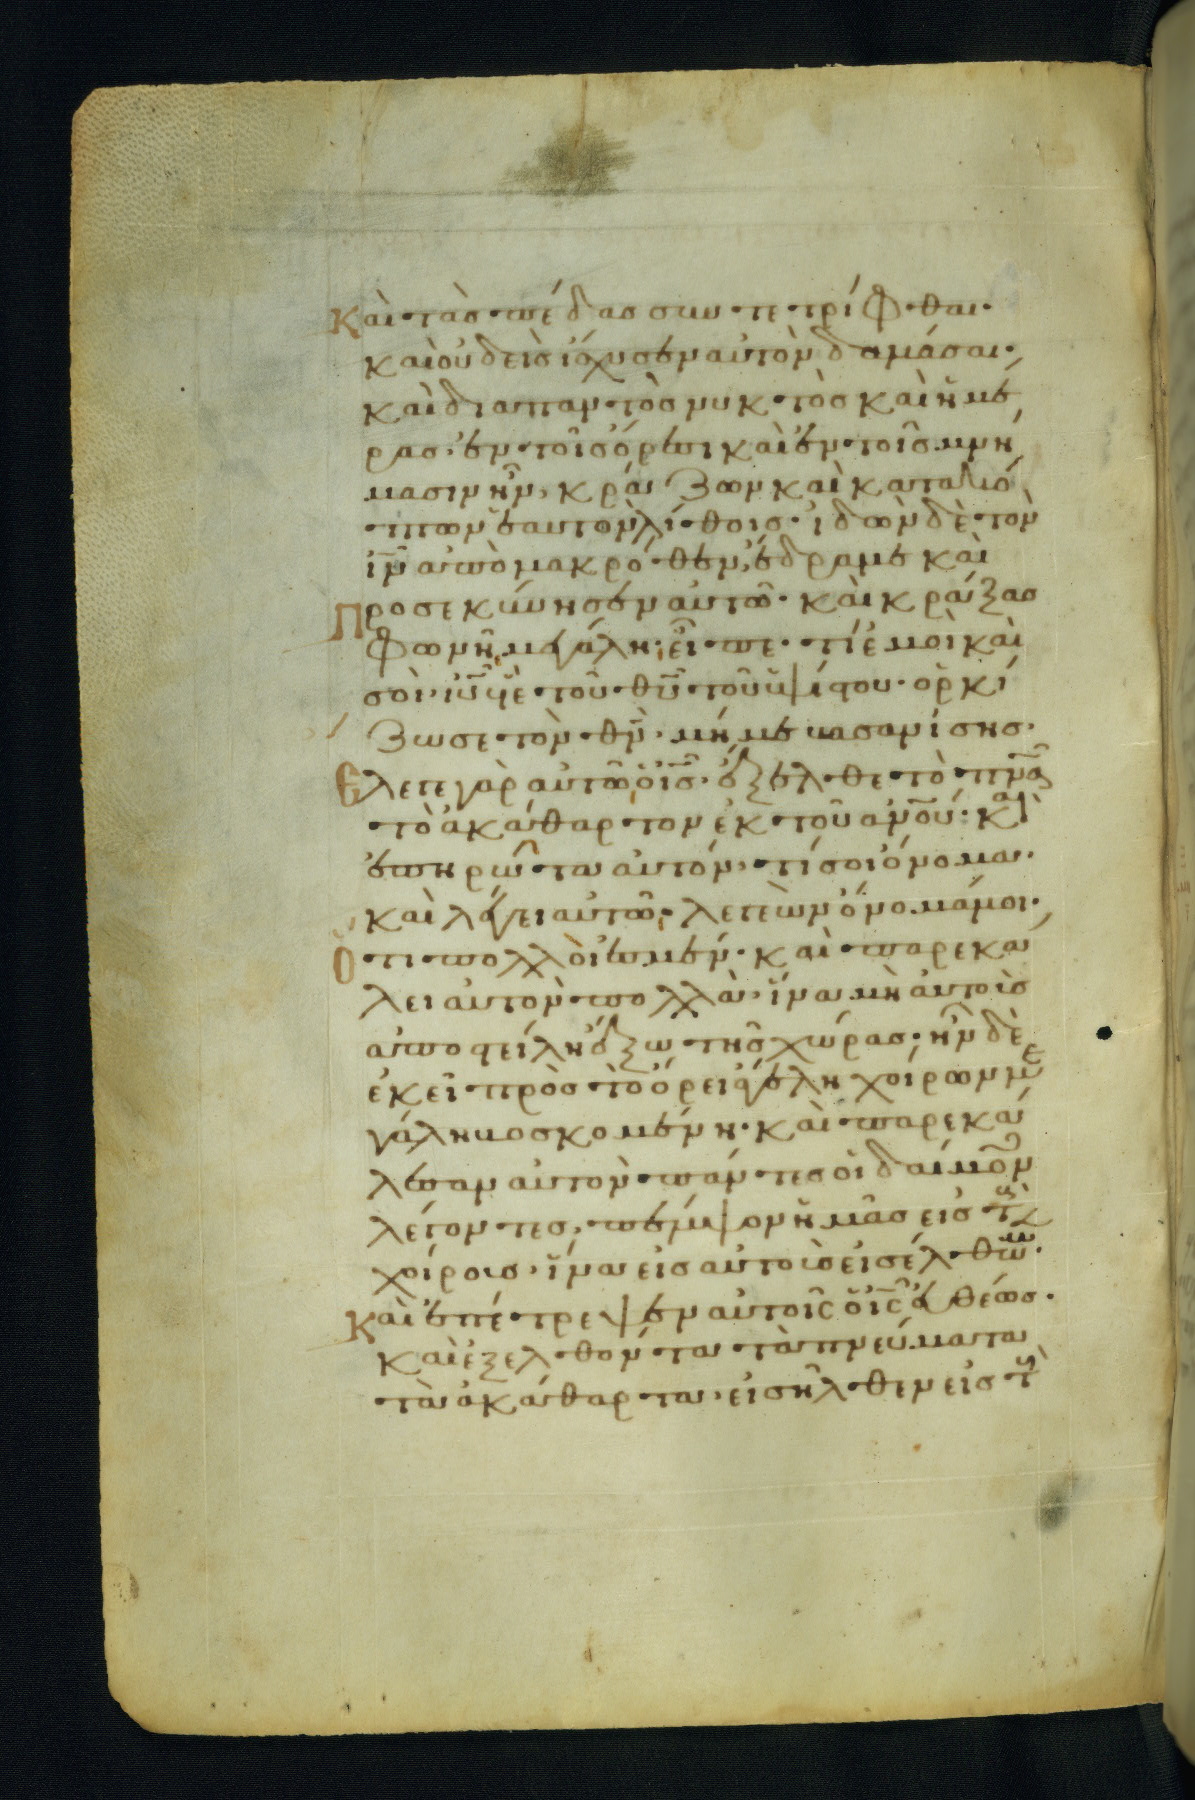 Καὶ τὰς πέδας συντετρίφθαι·
καὶ οὐδεὶς ἴσχυσεν αὐτὸν δαμάσαι·
καὶ διαπαντὸς νυκτὸς καὶ ἡμέ
ρας· ἐν τοῖς ὄρεσι καὶ ἐν τοῖς μνή
μασιν ἦν, κράζων καὶ κατακό
πτων ἑαυτὸν λίθοις· ἰδὼν δὲ τὸν
ἰν̅ ἀπὸ μακρόθεν, ἔδραμε καὶ
Προσεκύνησεν αὐτῶ· καὶ κράξας
φωνῆ μεγάλη· εἶπε· τί ἐμοὶ καὶ
σοὶ· ἰυ̅ υἱὲ τοῦ θυ̅ τοῦ ὑψίστου· ὁρκί
ζω σε τὸν θν̅· μή με βασανίσης·
Ελεγε γὰρ αὐτῶ ὁ ις̅· ἔξελθε τὸ πνα̅
τὸ ἀκάθαρτον ἐκ τοῦ ανου̅· καὶ
ἐπηρώτα αὐτόν, τί σοι ὄνομα·
καὶ λέγει αὐτῶ· λεγεὼν ὄνομά μοι·
Ὅτι πολλοί ἐσμεν· καὶ παρεκα
λει αὐτὸν πολλὰ· ἵνα μὴ αὐτοὺς
ἀποστείλη ἔξω τῆς χώρας· ἦν δὲ
ἐκεῖ πρὸς τὸ ὄρει ἀγέλη χοίρων με
γάλη βοσκομένη· καὶ παρεκά
λεσαν αὐτὸν πάντες οἱ δαίμον
λέγοντες, πέμψον ἡμᾶς εἰς τοὺς
χοίρους· ἵνα εἰς αὐτοὺς εἰσέλθωμεν·
Καὶ ἐπέτρεψεν αὐτοῖς ὁ ις̅ εὐθέως·
καὶ ἐξελθόντα τὰ πνεύματα
τὰ ἀκάθαρτα, εἰσῆλθεν εἰς τοὺς